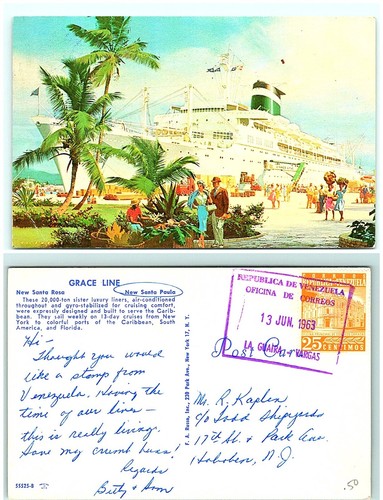 GRACE LINE
New Santa Rosa New Santa Paula
These 20,000-ton sister luxury liners, air-conditioned
throughout and gyro-stabilized for cruising comfort,
were expressly designed and built to serve the Carib-
bean. They sail weekly on 13-day cruises from New
York to colorful ports of the Caribbean, South
America, and Florida.
Hi -
Thought you would
like a stamp from
Venezuela. Having the
time of our lives -
this is really living.
Save my crumb buns!
Regards
Betty & Sam
55525-B
F. A. Russo, Inc., 230 Park Ave., New York 17, N. Y.
Post Card
REPUBLICA DE VENEZUELA
OFICINA DE CORREOS
13 JUN. 1963
LA GUAIRA, VARGAS
VENEZUELA
25 CENTIMOS
Mr. R. Kaplan
c/o Todd Shipyards
17th St. & Park Ave.
Hoboken, N.J.
.50